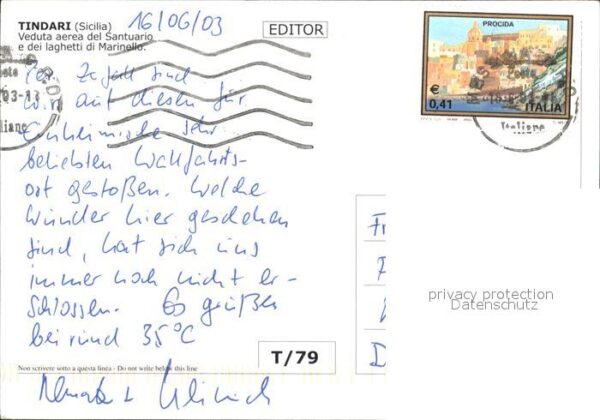 TINDARI (Sicilia)
Veduta aerea del Santuario
e dei laghetti di Marinello.
16/06/03
EDITOR
PROCIDA
€
0,41
ITALIA
Italiane
Per Zufall sind
wir auf diesen für
Einheimische sehr
beliebten Wallfahrts-
ort gestoßen. Welche
Wunder hier geschehen
sind, hat sich uns
immer noch nicht er-
schlossen. Es grüßen
bei rund 35°C
Non scrivere sotto a questa linea - Do not write below this line
T/79
privacy protection
Datenschutz